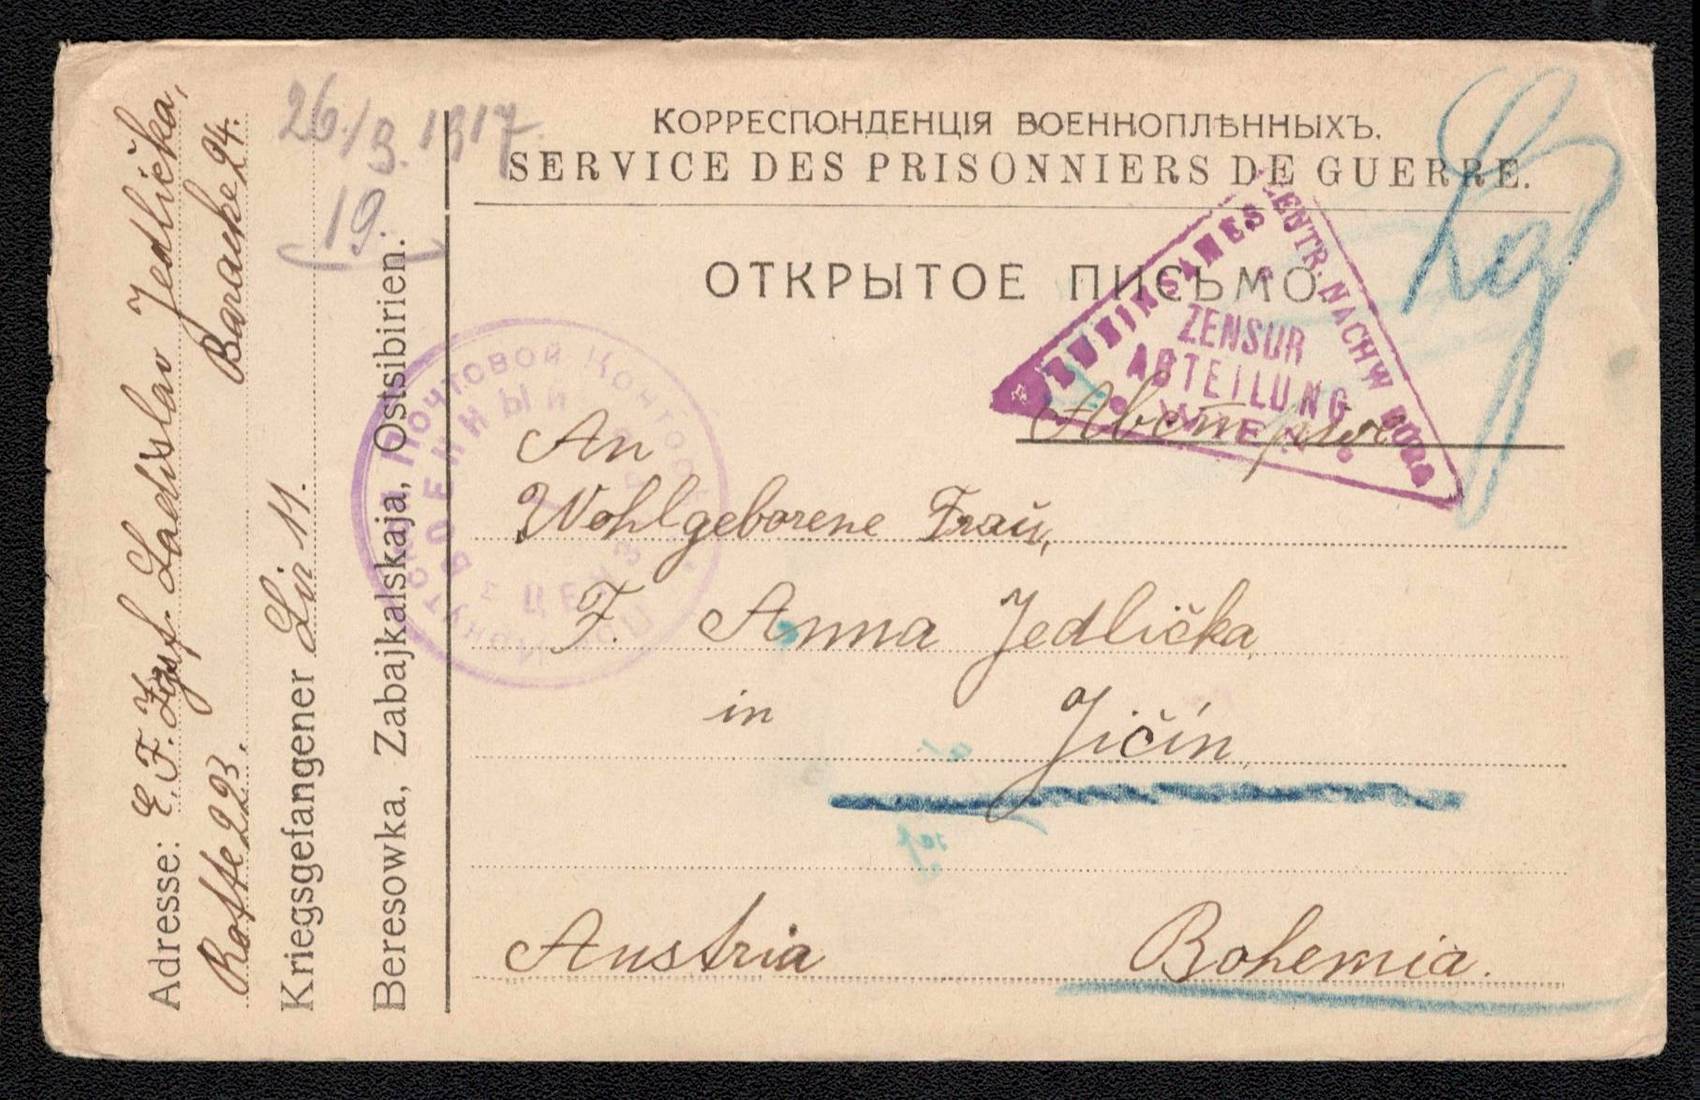 КОРРЕСПОНДЕНЦІЯ ВОЕННОПЛѢННЫХЪ.
SERVICE DES PRISONNIERS DE GUERRE.
ОТКРЫТОЕ ПИСЬМО
ZENTR. NACHW
ZENSUR
ABTEILUNG
WIEN
Австрія
An
Wohlgeborene Frau,
F. Anna Jedlička,
in Jičín,
Austria Bohemia.
26./3. 1917.
19.
Почтовой Конторы
ВОЕННЫЙ
ЦЕНЗ
Adresse: E. F. Ladislav Jedlička,
Rotte 223. Baracke 24.
Kriegsgefangener 11.
Beresowka, Zabajkalskaja, Ostsibirien.